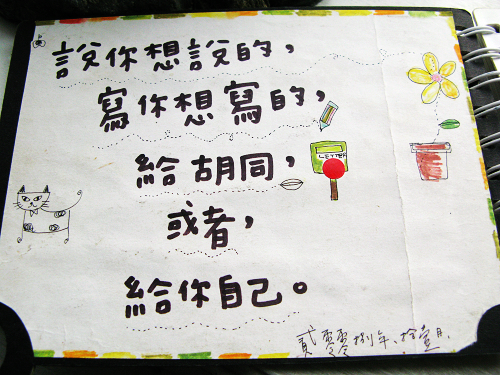 說你想說的，
寫你想寫的，
給胡同，
LETTER
或者，
給你自己。
貳零零捌年、拾壹月.